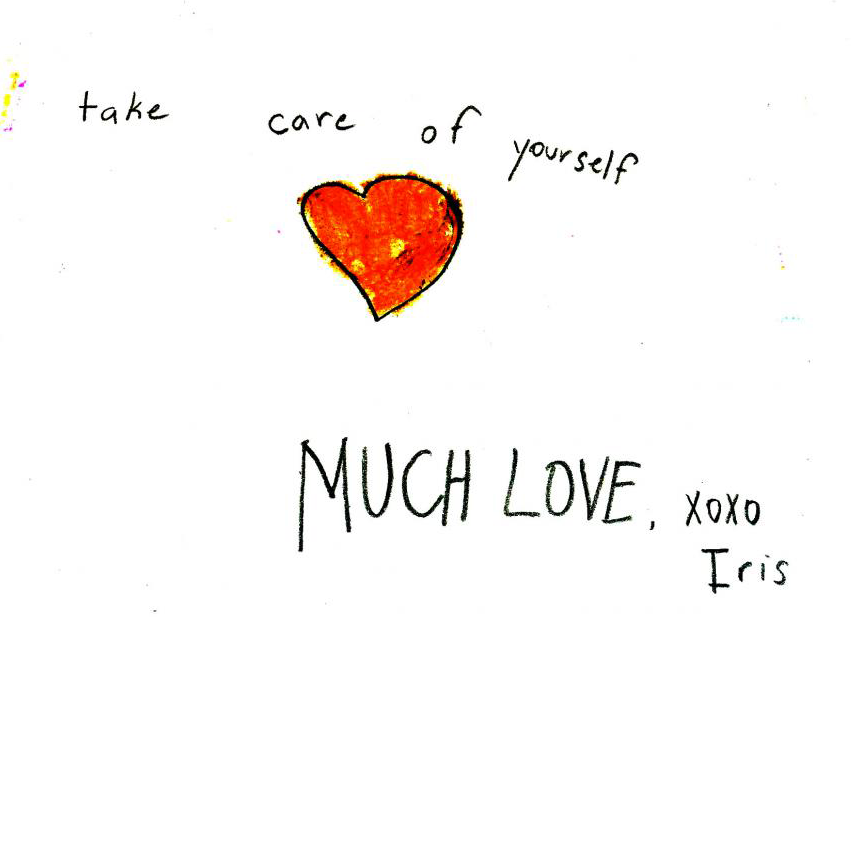 take care of yourself
MUCH LOVE, xoxo
Iris